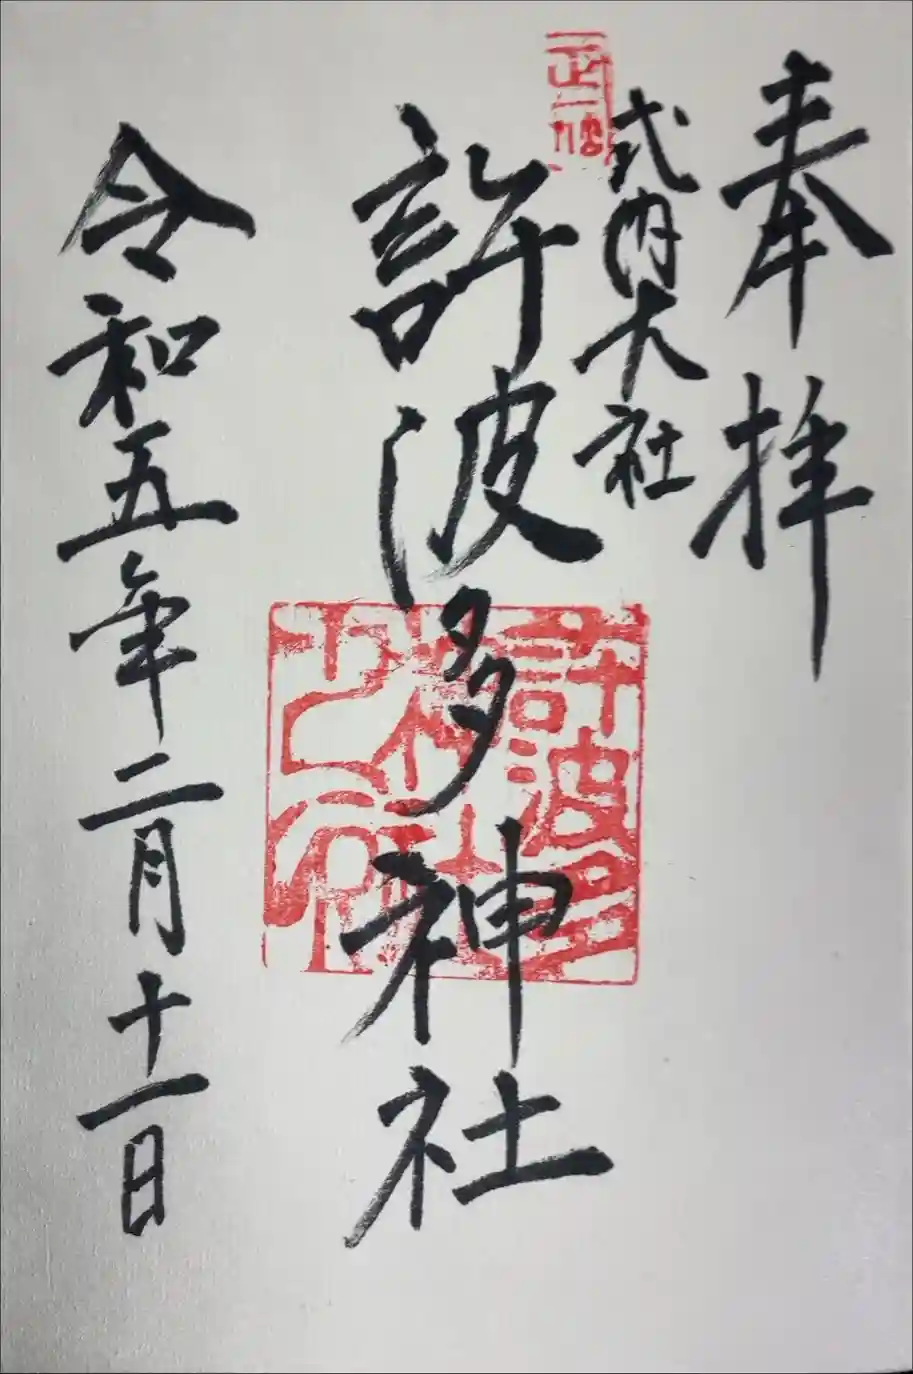 奉拝
式内大社
正一位
許波多神社
許波多神社之印
令和五年二月十一日